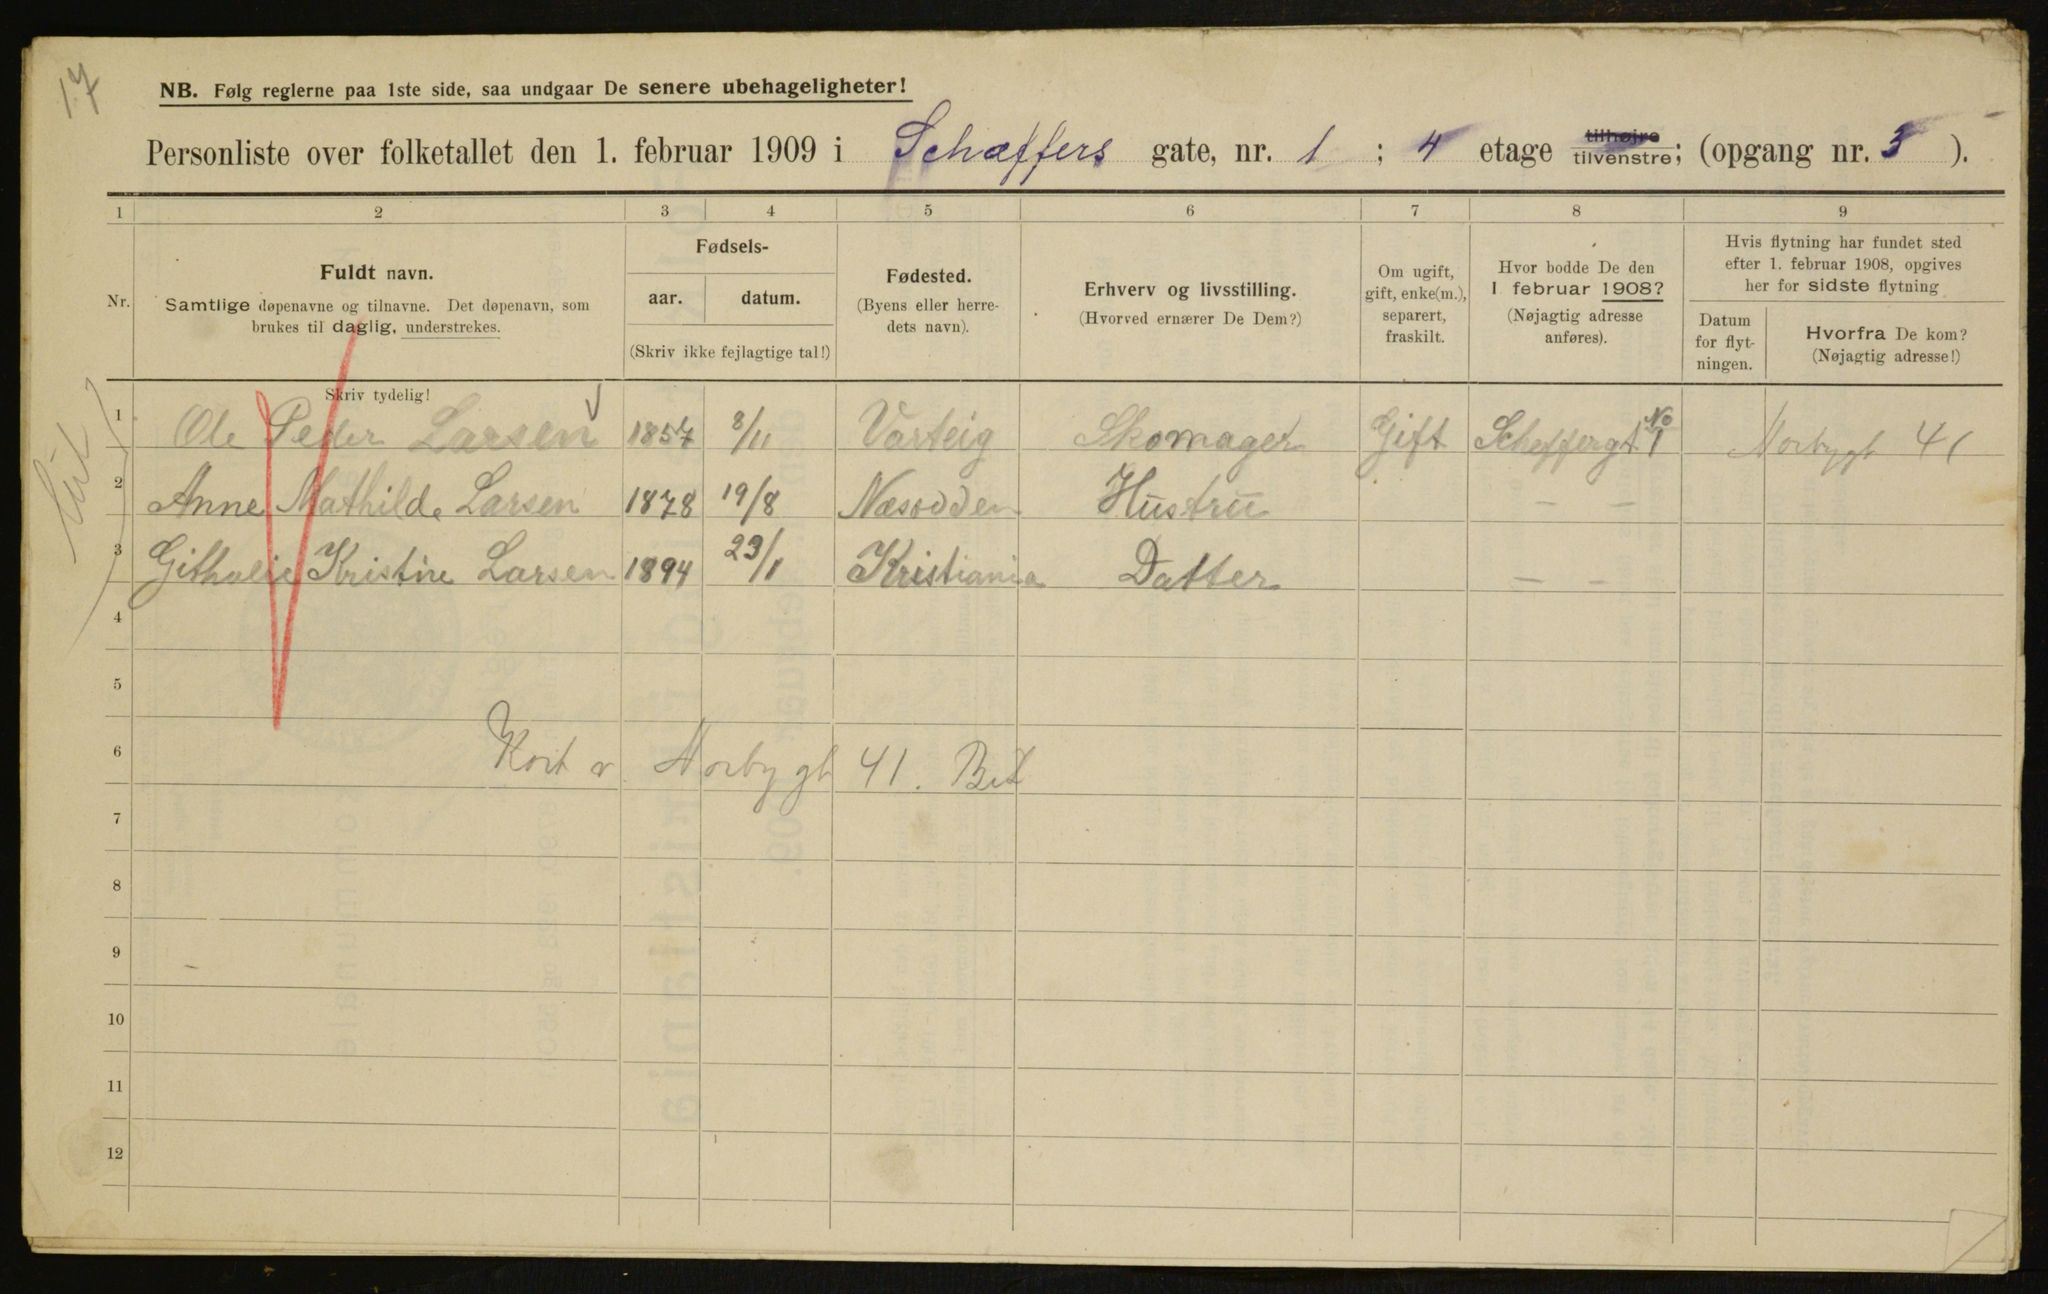 17
NB. Følg reglerne paa 1ste side, saa undgaar De senere ubehageligheter!
Personliste over folketallet den 1. februar 1909 i Schæffers gate, nr. 1 ; 4 etage tilhøjre tilvenstre; (opgang nr. 3 ).
1 2 3 4 5 6 7 8 9
Nr.
Fuldt navn.
Samtlige døpenavne og tilnavne. Det døpenavn, som
brukes til daglig, understrekes.
Skriv tydelig!
Fødsels-
aar. datum.
(Skriv ikke fejlagtige tal!)
Fødested.
(Byens eller herre-
dets navn).
Erhverv og livsstilling.
(Hvorved ernærer De Dem?)
Om ugift,
gift, enke(m.),
separert,
fraskilt.
Hvor bodde De den
1 februar 1908?
(Nøjagtig adresse
anføres).
Hvis flytning har fundet sted
efter 1. februar 1908, opgives
her for sidste flytning
Datum
for flyt-
ningen.
Hvorfra De kom?
(Nøjagtig adresse!)
1 Ole Peder Larsen 1857 8/11 Varteig Skomager Gift Scheffergt No 1 Norbygt 41
2 Anne Mathilde Larsen 1878 19/8 Næsodden Hustru — —
3 Githalie Kristine Larsen 1894 23/1 Kristiania Datter — —
4
5
6 Kort v. Norbygt 41. Bet
7
8
9
10
11
12